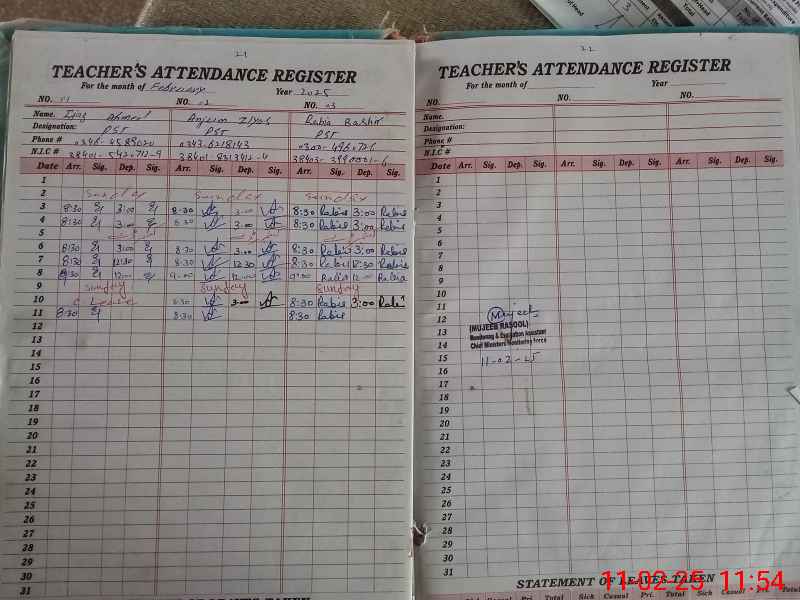 21
TEACHER'S ATTENDANCE REGISTER
For the month of February Year 2025
NO. 01 NO. 02 NO. 03
Name. Ijaz Ahmed Anjum Ilyas Rabia Bashir
Designation: PST PST PST
Phone # 0346-4589020 0343-6218143
N.I.C #
Date Arr. Sig. Dep. Sig. Arr. Sig. Dep. Sig. Arr. Sig. Dep. Sig.
1
2 Sunday Sunday Sunday
3 8:30 3:00 8:30 3:00 8:30 Rabia 3:00 Rabia
4 8:30 3:00 8:30 3:00 8:30 Rabia 3:00 Rabia
5
6 8:30 3:00 8:30 3:00 8:30 Rabia 3:00 Rabia
7 8:30 12:30 8:30 12:30 8:30 Rabia 12:30 Rabia
8 9:00 12:00 9:00 12:00 9:00 Rabia 12:00 Rabia
9 Sunday Sunday Sunday
10 C Leave 8:30 3:00 8:30 Rabia 3:00 Rabia
11 8:30 8:30 8:30 Rabia
12
13
14
15
16
17
18
19
20
21
22
23
24
25
26
27
28
29
30
31
22
TEACHER'S ATTENDANCE REGISTER
For the month of Year
NO. NO. NO.
Name.
Designation:
Phone #
N.I.C #
Date Arr. Sig. Dep. Sig. Arr. Sig. Dep. Sig. Arr. Sig. Dep. Sig.
1
2
3
4
5
6
7
8
9
10
11
12 Mujeeb
(MUJEEB RASOOL)
13 Monitoring & Evaluation Assistant
14 Chief Ministers Monitoring Force
15 11-02-25
16
17
18
19
20
21
22
23
24
25
26
27
28
29
30
31
STATEMENT OF LEAVES TAKEN
Sick Casual Pri. Total Sick Casual Pri. Total Sick Casual Pri. Total
11.02.25 11:54